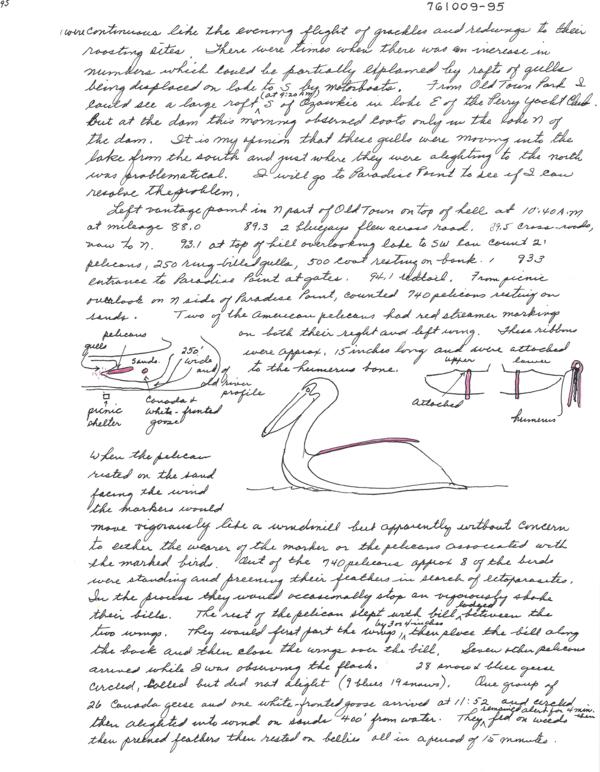 95
761009-95
were continuous like the evening flight of grackles and redwings to their
roosting sites. There were times when there was an increase in
numbers which could be partially explained by rafts of gulls
being displaced on lake to S by motorboats. From Old Town Park I
(at 9:20 AM)
could see a large raft, S of Ozawkie in lake E of the Perry Yacht Club.
But at the dam this morning observed coots only in the lake N of
the dam. It is my opinion that these gulls were moving into the
lake from the south and just where they were alighting to the north
was problematical. I will go to Paradise Point to see if I can
resolve the problem.
Left vantage point in N part of Old Town on top of hell at 10:40 A.M
at mileage 88.0 89.3 2 bluejays flew across road. 89.5 cross-roads,
now to N. 93.1 at top of hill overlooking lake to SW can count 21
pelicans, 250 ring-billed gulls, 500 coot resting on bank. 93.3
entrance to Paradise Point at gates. 94.1 redtail. From picnic
overlook on N side of Paradise Point, counted 740 pelicans resting on
sands. Two of the American pelicans had red streamer markings
on both their right and left wing. These ribbons
were approx. 15 inches long and were attached
to the humerus bone.
pelicans
gulls
sands
250'
wide
end of
old river
profile
picnic
shelter
Canada &
white-fronted
goose
upper
lower
attached
humerus
When the pelican
rested on the sand
facing the wind
the markers would
move vigorously like a windmill but apparently without concern
to either the wearer of the marker or the pelicans associated with
the marked birds. Out of the 740 pelicans approx 8 of the birds
were standing and preening their feathers in search of ectoparasites.
In the process they would occasionally stop an vigorously shake
their bills. The rest of the pelican slept with bill lodged between the
two wings. They would first part the wings by 3 or 4 inches, then place the bill along
the back and then close the wings over the bill. Seven other pelicans
arrived while I was observing the flock. 28 snow & blue geese
circled, called but did not alight (9 blues 19 snows). One group of
26 Canada geese and one white-fronted goose arrived at 11:52 and circled
then alighted into wind on sands 400' from water. They remained alert for 4 min. then fed on weeds
then preened feathers then rested on bellies all in a period of 15 minutes.